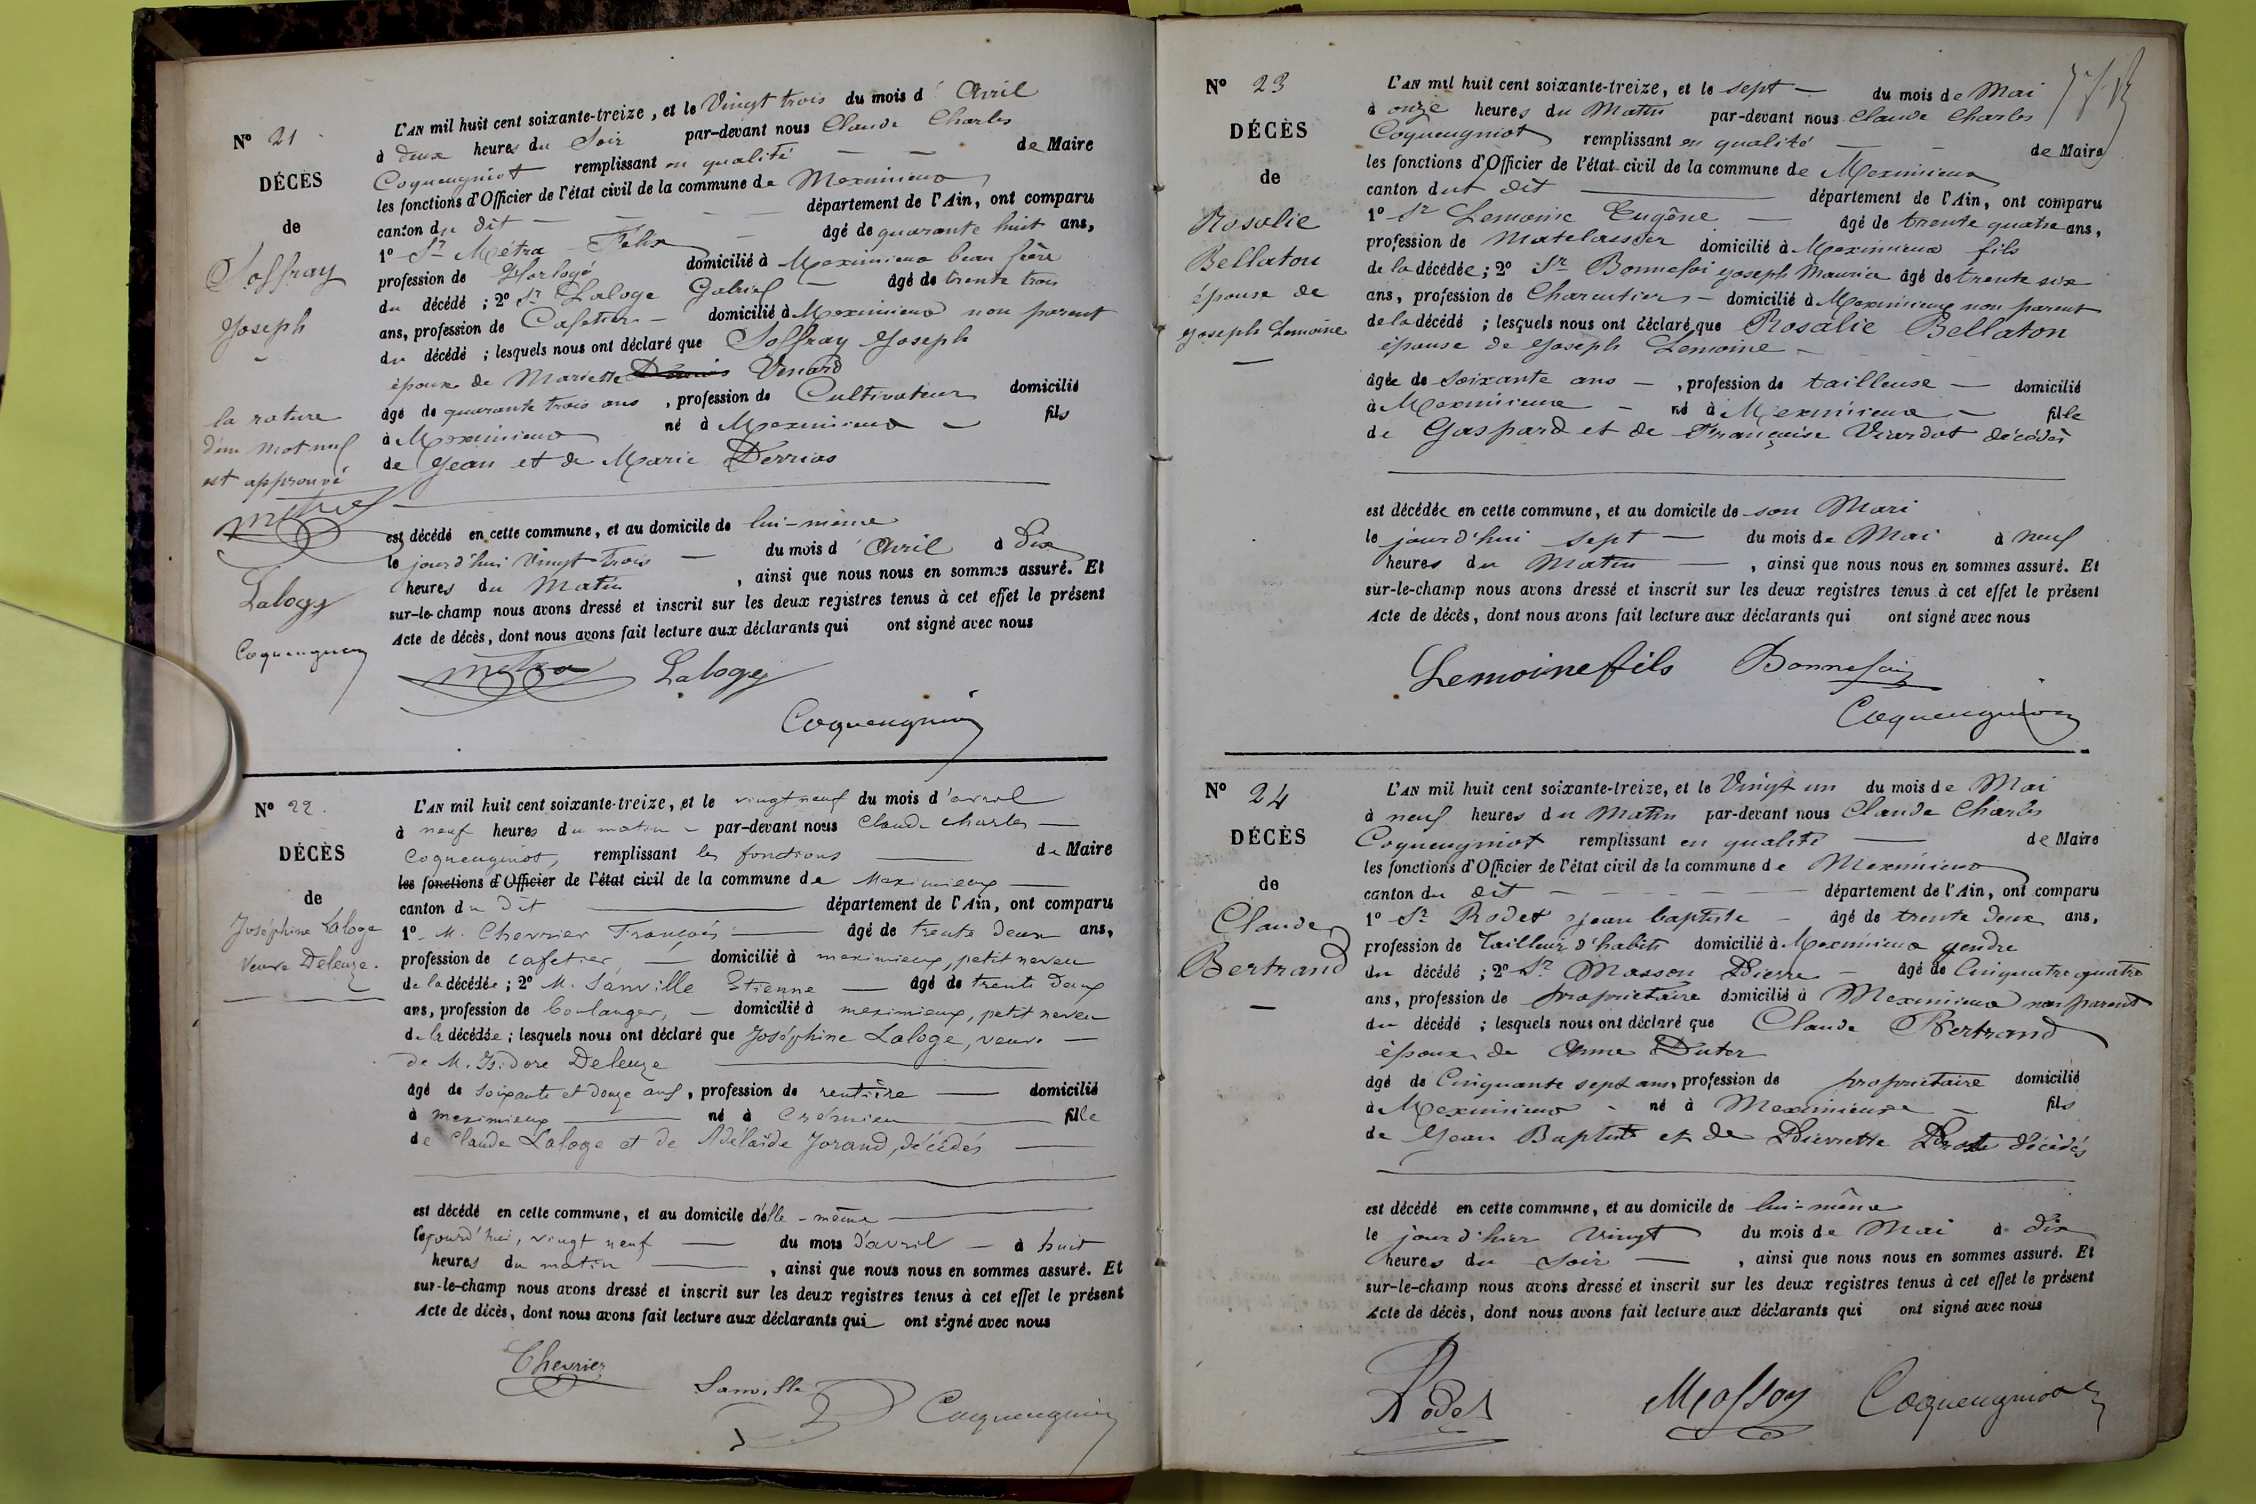 N° 21
DÉCÈS
de
Joffray
Joseph
la rature
d'un mot nul
est approuvé
Métra
Laloge
Coqueugniot
L'AN mil huit cent soixante-treize, et le Vingt trois du mois d'Avril
à deux heures du Soir par-devant nous Claude Charles
Coqueugniot remplissant en qualité de Maire
les fonctions d'Officier de l'état civil de la commune de Meximieux
canton du dit département de l'Ain, ont comparu
1° Sr Métra Félix âgé de quarante huit ans,
profession de Horloger domicilié à Meximieux beau frère
du décédé ; 2° Sr Laloge Gabriel âgé de trente trois
ans, profession de Cafetier domicilié à Meximieux non parent
du décédé ; lesquels nous ont déclaré que Joffray Joseph
époux de Mariette Venard
âgé de quarante trois ans, profession de Cultivateur domicilié
à Meximieux né à Meximieux fils
de Jean et de Marie Derrias
est décédé en cette commune, et au domicile de lui-même
le jourd'hui Vingt Trois du mois d'Avril à Dix
heures du Matin, ainsi que nous nous en sommes assuré. Et
sur-le-champ nous avons dressé et inscrit sur les deux registres tenus à cet effet le présent
Acte de décès, dont nous avons fait lecture aux déclarants qui ont signé avec nous
Métra Laloge
Coqueugniot
N° 22.
DÉCÈS
de
Joséphine Laloge
Veuve Deleuze.
L'AN mil huit cent soixante-treize, et le vingt neuf du mois d'avril
à neuf heures du matin par-devant nous Claude Charles
Coqueugniot, remplissant les fonctions de Maire
les fonctions d'Officier de l'état civil de la commune de Meximieux
canton du dit département de l'Ain, ont comparu
1° M. Chevrier François âgé de trente deux ans,
profession de cafetier domicilié à meximieux, petit neveu
de la décédée ; 2° M. Sanville Etienne âgé de trente deux
ans, profession de boulanger, domicilié à meximieux, petit neveu
de la décédée ; lesquels nous ont déclaré que Joséphine Laloge, veuve
de M. Isidore Deleuze
âgé de soixante et douze ans, profession de rentière domicilié
à meximieux né à Crémieu fille
de Claude Laloge et de Adélaïde Jorand, décédés
est décédé en cette commune, et au domicile d'elle-même
le jourd'hui, vingt neuf du mois d'avril à huit
heures du matin, ainsi que nous nous en sommes assuré. Et
sur-le-champ nous avons dressé et inscrit sur les deux registres tenus à cet effet le présent
Acte de décès, dont nous avons fait lecture aux déclarants qui ont signé avec nous
Chevrier
Sanville Coqueugniot
N° 23
DÉCÈS
de
Rosalie
Bellaton
épouse de
Joseph Lemoine
L'AN mil huit cent soixante-treize, et le sept du mois de Mai
à onze heures du Matin par-devant nous Claude Charles
Coqueugniot remplissant en qualité de Maire
les fonctions d'Officier de l'état civil de la commune de Meximieux
canton dut dit département de l'Ain, ont comparu
1° Sr Lemoine Eugène âgé de trente quatre ans,
profession de Matelassier domicilié à Meximieux fils
de la décédée ; 2° Sr Bonnefoi Joseph Maurice âgé de trente six
ans, profession de Charcutier domicilié à Meximieux non parent
de la décédé ; lesquels nous ont déclaré que Rosalie Bellaton
épouse de Joseph Lemoine
âgée de Soixante ans, profession de tailleuse domicilié
à Meximieux né à Meximieux fille
de Gaspard et de Françoise Viardot décédés
est décédée en cette commune, et au domicile de son Mari
le jourd'hui sept du mois de Mai à neuf
heures du Matin, ainsi que nous nous en sommes assuré. Et
sur-le-champ nous avons dressé et inscrit sur les deux registres tenus à cet effet le présent
Acte de décès, dont nous avons fait lecture aux déclarants qui ont signé avec nous
Lemoine fils Bonnefoi
Coqueugniot
N° 24
DÉCÈS
de
Claude
Bertrand
L'AN mil huit cent soixante-treize, et le Vingt un du mois de Mai
à neuf heures du Matin par-devant nous Claude Charles
Coqueugniot remplissant en qualité de Maire
les fonctions d'Officier de l'état civil de la commune de Meximieux
canton du dit département de l'Ain, ont comparu
1° Sr Rodet Jean baptiste âgé de trente deux ans,
profession de Tailleur d'habits domicilié à Meximieux gendre
du décédé ; 2° Sr Masson Pierre âgé de Cinquatre quatre
ans, profession de propriétaire domicilié à Meximieux non parent
du décédé ; lesquels nous ont déclaré que Claude Bertrand
époux de Anne Duter
âgé de Cinquante sept ans, profession de propriétaire domicilié
à Meximieux né à Meximieux fils
de Jean Baptiste et de Pierrette Prost décédés
est décédé en cette commune, et au domicile de lui-même
le jour d'hier Vingt du mois de Mai à dix
heures du Soir, ainsi que nous nous en sommes assuré. Et
sur-le-champ nous avons dressé et inscrit sur les deux registres tenus à cet effet le présent
Acte de décès, dont nous avons fait lecture aux déclarants qui ont signé avec nous
Rodet Masson Coqueugniot